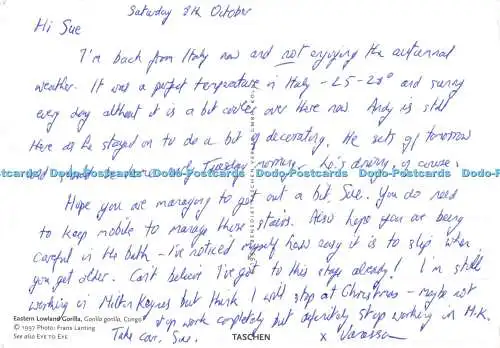 Saturday 8th October
Hi Sue
I'm back from Italy now and not enjoying the autumnal
weather. It was a perfect temperature in Italy - 25-28° and sunny
every day although it is a bit cooler over there now. Andy is still
there as he stayed on to do a bit of decorating. He sets off tomorrow
and should be here early Tuesday morning - he's driving of course.
Hope you are managing to get out a bit, Sue. You do need
to keep mobile to manage those stairs. Also hope you are being
careful in the bath - I've noticed myself how easy it is to slip when
you get older. Can't believe I've got to this stage already! I'm still
working in Milton Keynes but think I will stop at Christmas - maybe not
stop work completely but definitely stop working in M.K.
Take care, Sue.
x Vanessa
Eastern Lowland Gorilla, Gorilla gorilla, Congo
© 1997 Photo: Frans Lanting
See also EYE TO EYE
TASCHEN
Dodo-Postcards